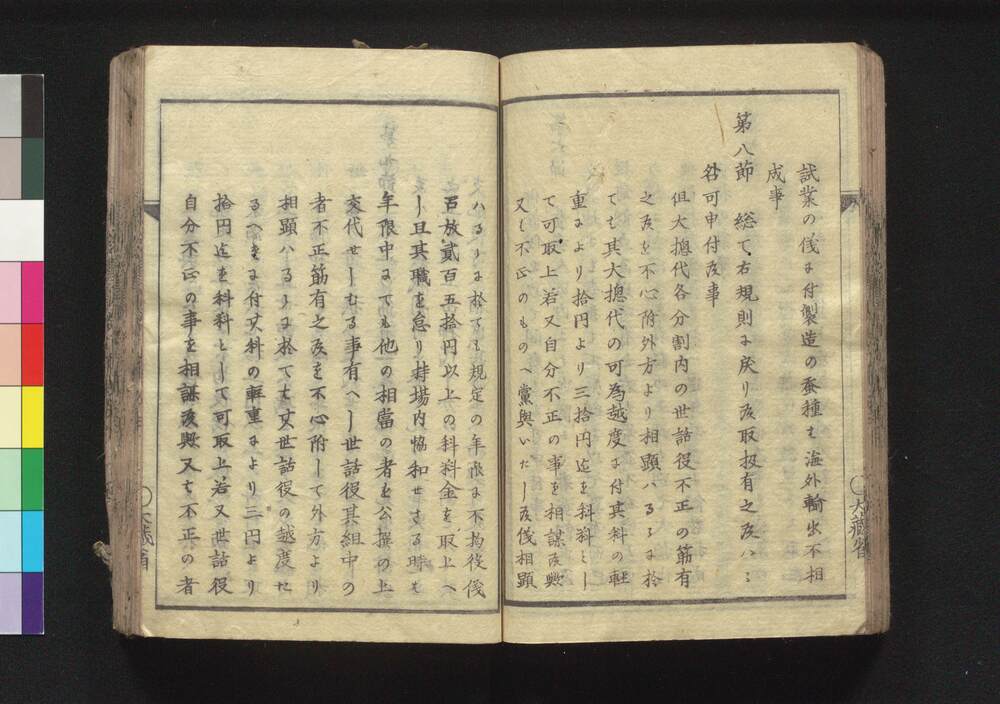 試業の儀ニ付製造の蚕種も海外輸出不相
成事
第八節　総て右規則ニ戻り候取扱有之候ハヽ
咎可申付候事
但大摠代各分割内の世話役不正の筋有
之候を不心附外方より相顕ハるゝニ於
ても其大摠代の可為越度ニ付其科の軽
重により拾円より三拾円迄を科料とし
て可取上若又自分不正の事を相謀候歟
又は不正のものへ党与いたし候儀相顕
ハるゝニ於ても規定の年限ニ不拘役儀
召放貳百五拾円以上の科料金を取上へ
し且其職を怠り持場内協和せさる時も
年限中にても他の相當の者を公撰の上
交代せしむる事有へし世話役其組中の
者不正筋有之候を不心附して外方より
相顕ハるゝニ於ても其世話役の越度た
るへきニ付其科の軽重により三円より
拾円迄を科料として可取上若又世話役
自分不正の事を相謀候歟又は不正の者
大蔵省
大蔵省